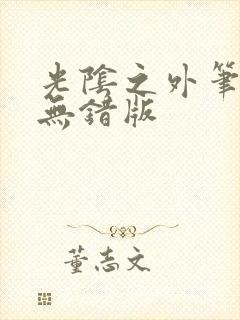 光陰之外筆
無錯版
董志文